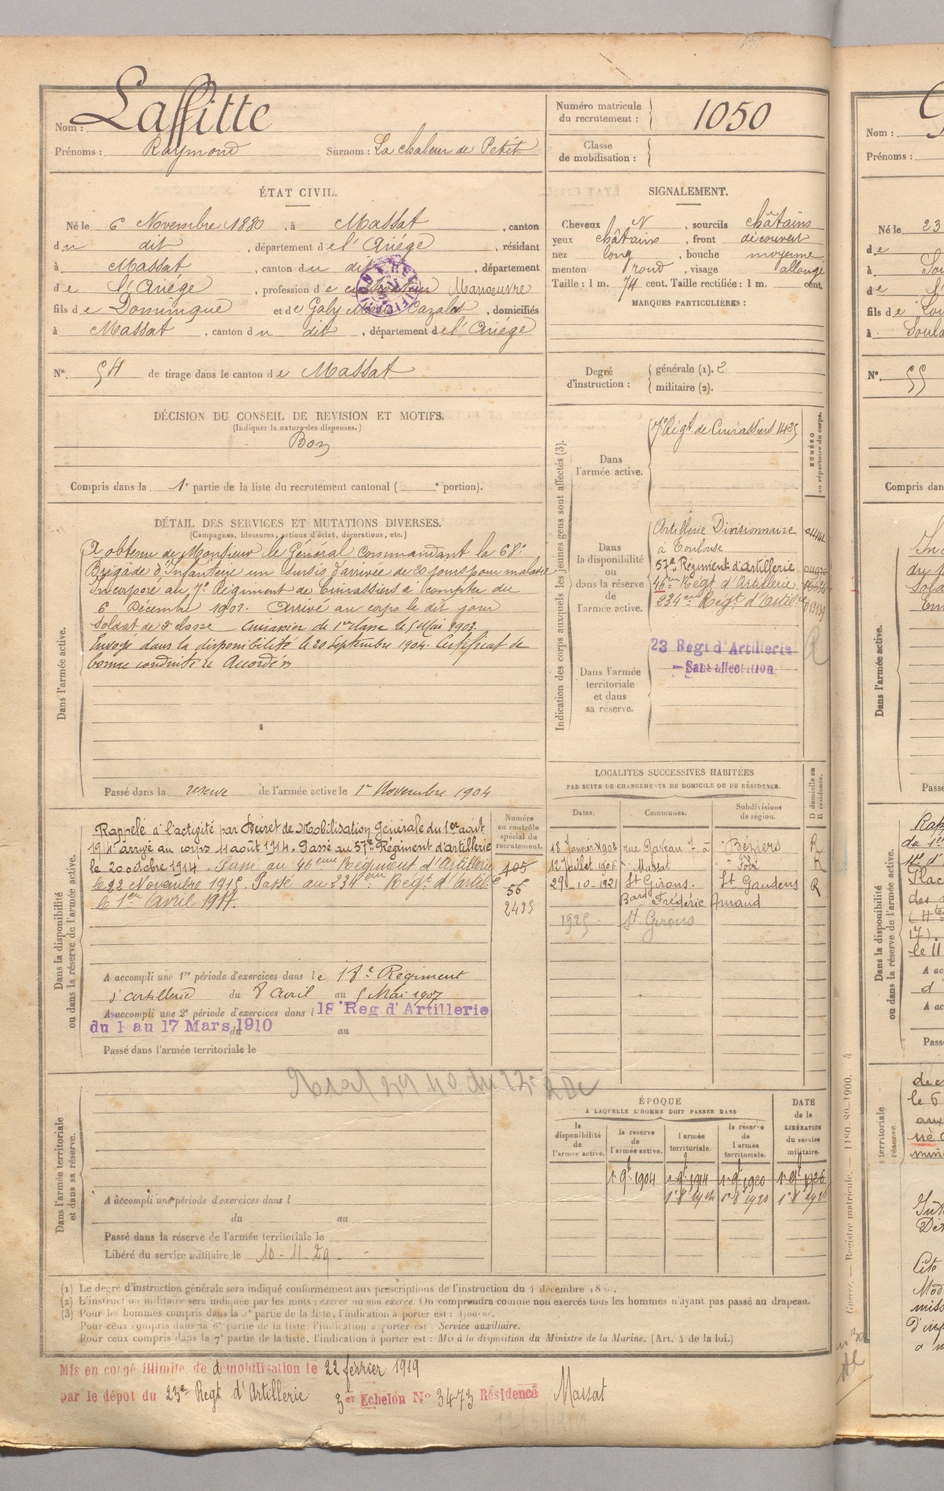 Nom : Laffitte
Prénoms : Raymond Surnom : La chaleur de Petit
Numéro matricule du recrutement : 1050
Classe de mobilisation :
ÉTAT CIVIL.
Né le 6 Novembre 1880, à Massat, canton
du dit, département de l'Ariège, résidant
à Massat, canton du dit, département
de l'Ariège, profession de Manoeuvre
fils de Dominique et de Galy Cazalot, domiciliés
à Massat, canton du dit, département de l'Ariège
N° 54 de tirage dans le canton de Massat
SIGNALEMENT.
Cheveux N, sourcils châtains
yeux châtains, front découvert
nez long, bouche moyenne
menton rond, visage allongé
Taille : 1 m. 74 cent. Taille rectifiée : 1 m. cent.
MARQUES PARTICULIÈRES :
Degré d'instruction : générale (1). 2
militaire (2).
DÉCISION DU CONSEIL DE REVISION ET MOTIFS.
(Indiquer la nature des dispenses.)
Bon
Compris dans la 1e partie de la liste du recrutement cantonal ( e portion).
DÉTAIL DES SERVICES ET MUTATIONS DIVERSES.
(Campagnes, blessures, actions d'éclat, décorations, etc.)
Dans l'armée active.
A obtenu de Monsieur le Général commandant la 68e
Brigade d'Infanterie un sursis d'arrivée de 20 jours pour maladie
Incorporé au 7e Régiment de Cuirassiers à compter du
6 Décembre 1901. Arrivé au corps le dit jour
Soldat de 2e classe Cuirassier de 1re classe le 5 Mai 1903.
Envoyé dans la disponibilité le 20 Septembre 1904. Certificat de
bonne conduite Accordé
Passé dans la réserve de l'armée active le 1er Novembre 1904
Indication des corps auxquels les jeunes gens sont affectés (3).
NUMÉRO au répertoire du corps.
Dans l'armée active.
7e Régt de Cuirassiers 1435
Dans la disponibilité ou dans la réserve de l'armée active.
Artillerie Divisionnaire
à Toulouse
57e Régiment d'artillerie
46e Régt d'Artillerie
234e Régt d'Artie
Dans l'armée territoriale et dans sa réserve.
23 Régt d'Artillerie
Sans affectation
Dans la disponibilité ou dans la réserve de l'armée active.
Rappelé à l'activité par Décret de Mobilisation Générale du 1er août
1914 arrivé au corps 11 août 1914. Passé au 57e Régiment d'artillerie
le 20 octobre 1914. Passé au 46eme Régiment d'artillerie
le 22 Novembre 1915. Passé au 234eme Régt d'artie
le 1er Avril 1917.
Numéro au contrôle spécial du recrutement.
405
56
2433
A accompli une 1re période d'exercices dans le 18e Régiment
d'artillerie du 8 avril au 5 Mai 1907
A accompli une 2e période d'exercices dans l 18 Reg d'Artillerie
du 1 au 17 Mars 1910 au
Passé dans l'armée territoriale le
LOCALITES SUCCESSIVES HABITÉES
PAR SUITE DE CHANGEMENTS DE DOMICILE OU DE RÉSIDENCE.
Dates. Communes. Subdivisions de région. D domicile ou R résidence.
18 Janvier 1906 Béziers R
12 Juillet 1906 Massat Foix R
29-10-1921 St Girons St Gaudens R
1925 St Girons
Dans l'armée territoriale et dans sa réserve.
A accompli une période d'exercices dans l
du au
Passé dans la réserve de l'armée territoriale le
Libéré du service militaire le 10-11-29
ÉPOQUE
À LAQUELLE L'HOMME DOIT PASSER DANS
la disponibilité de l'armée active. la réserve de l'armée active. l'armée territoriale. la réserve de l'armée territoriale.
DATE de la LIBÉRATION du service militaire.
1 9e 1904 1 9e 1914 1 9e 1920 1 9e 1926
(1) Le degré d'instruction générale sera indiqué conformément aux prescriptions de l'instruction du 4 décembre
(2) L'instruction militaire sera indiquée par les mots : exercé ou non exercé. On comprendra comme non exercés tous les hommes n'ayant pas passé au drapeau.
(3) Pour les hommes compris dans la 5e partie de la liste, l'indication à porter est : Ajourné.
Pour ceux compris dans la 6e partie de la liste, l'indication à porter est Service auxiliaire.
Pour ceux compris dans la 7e partie de la liste, l'indication à porter est : Mis à la disposition du Ministre de la Marine. (Art. 4 de la loi.)
Mis en congé illimité de démobilisation le 22 février 1919
par le dépôt du 23e Régt d'Artillerie 3er Echelon N° 3473 Résidence Massat